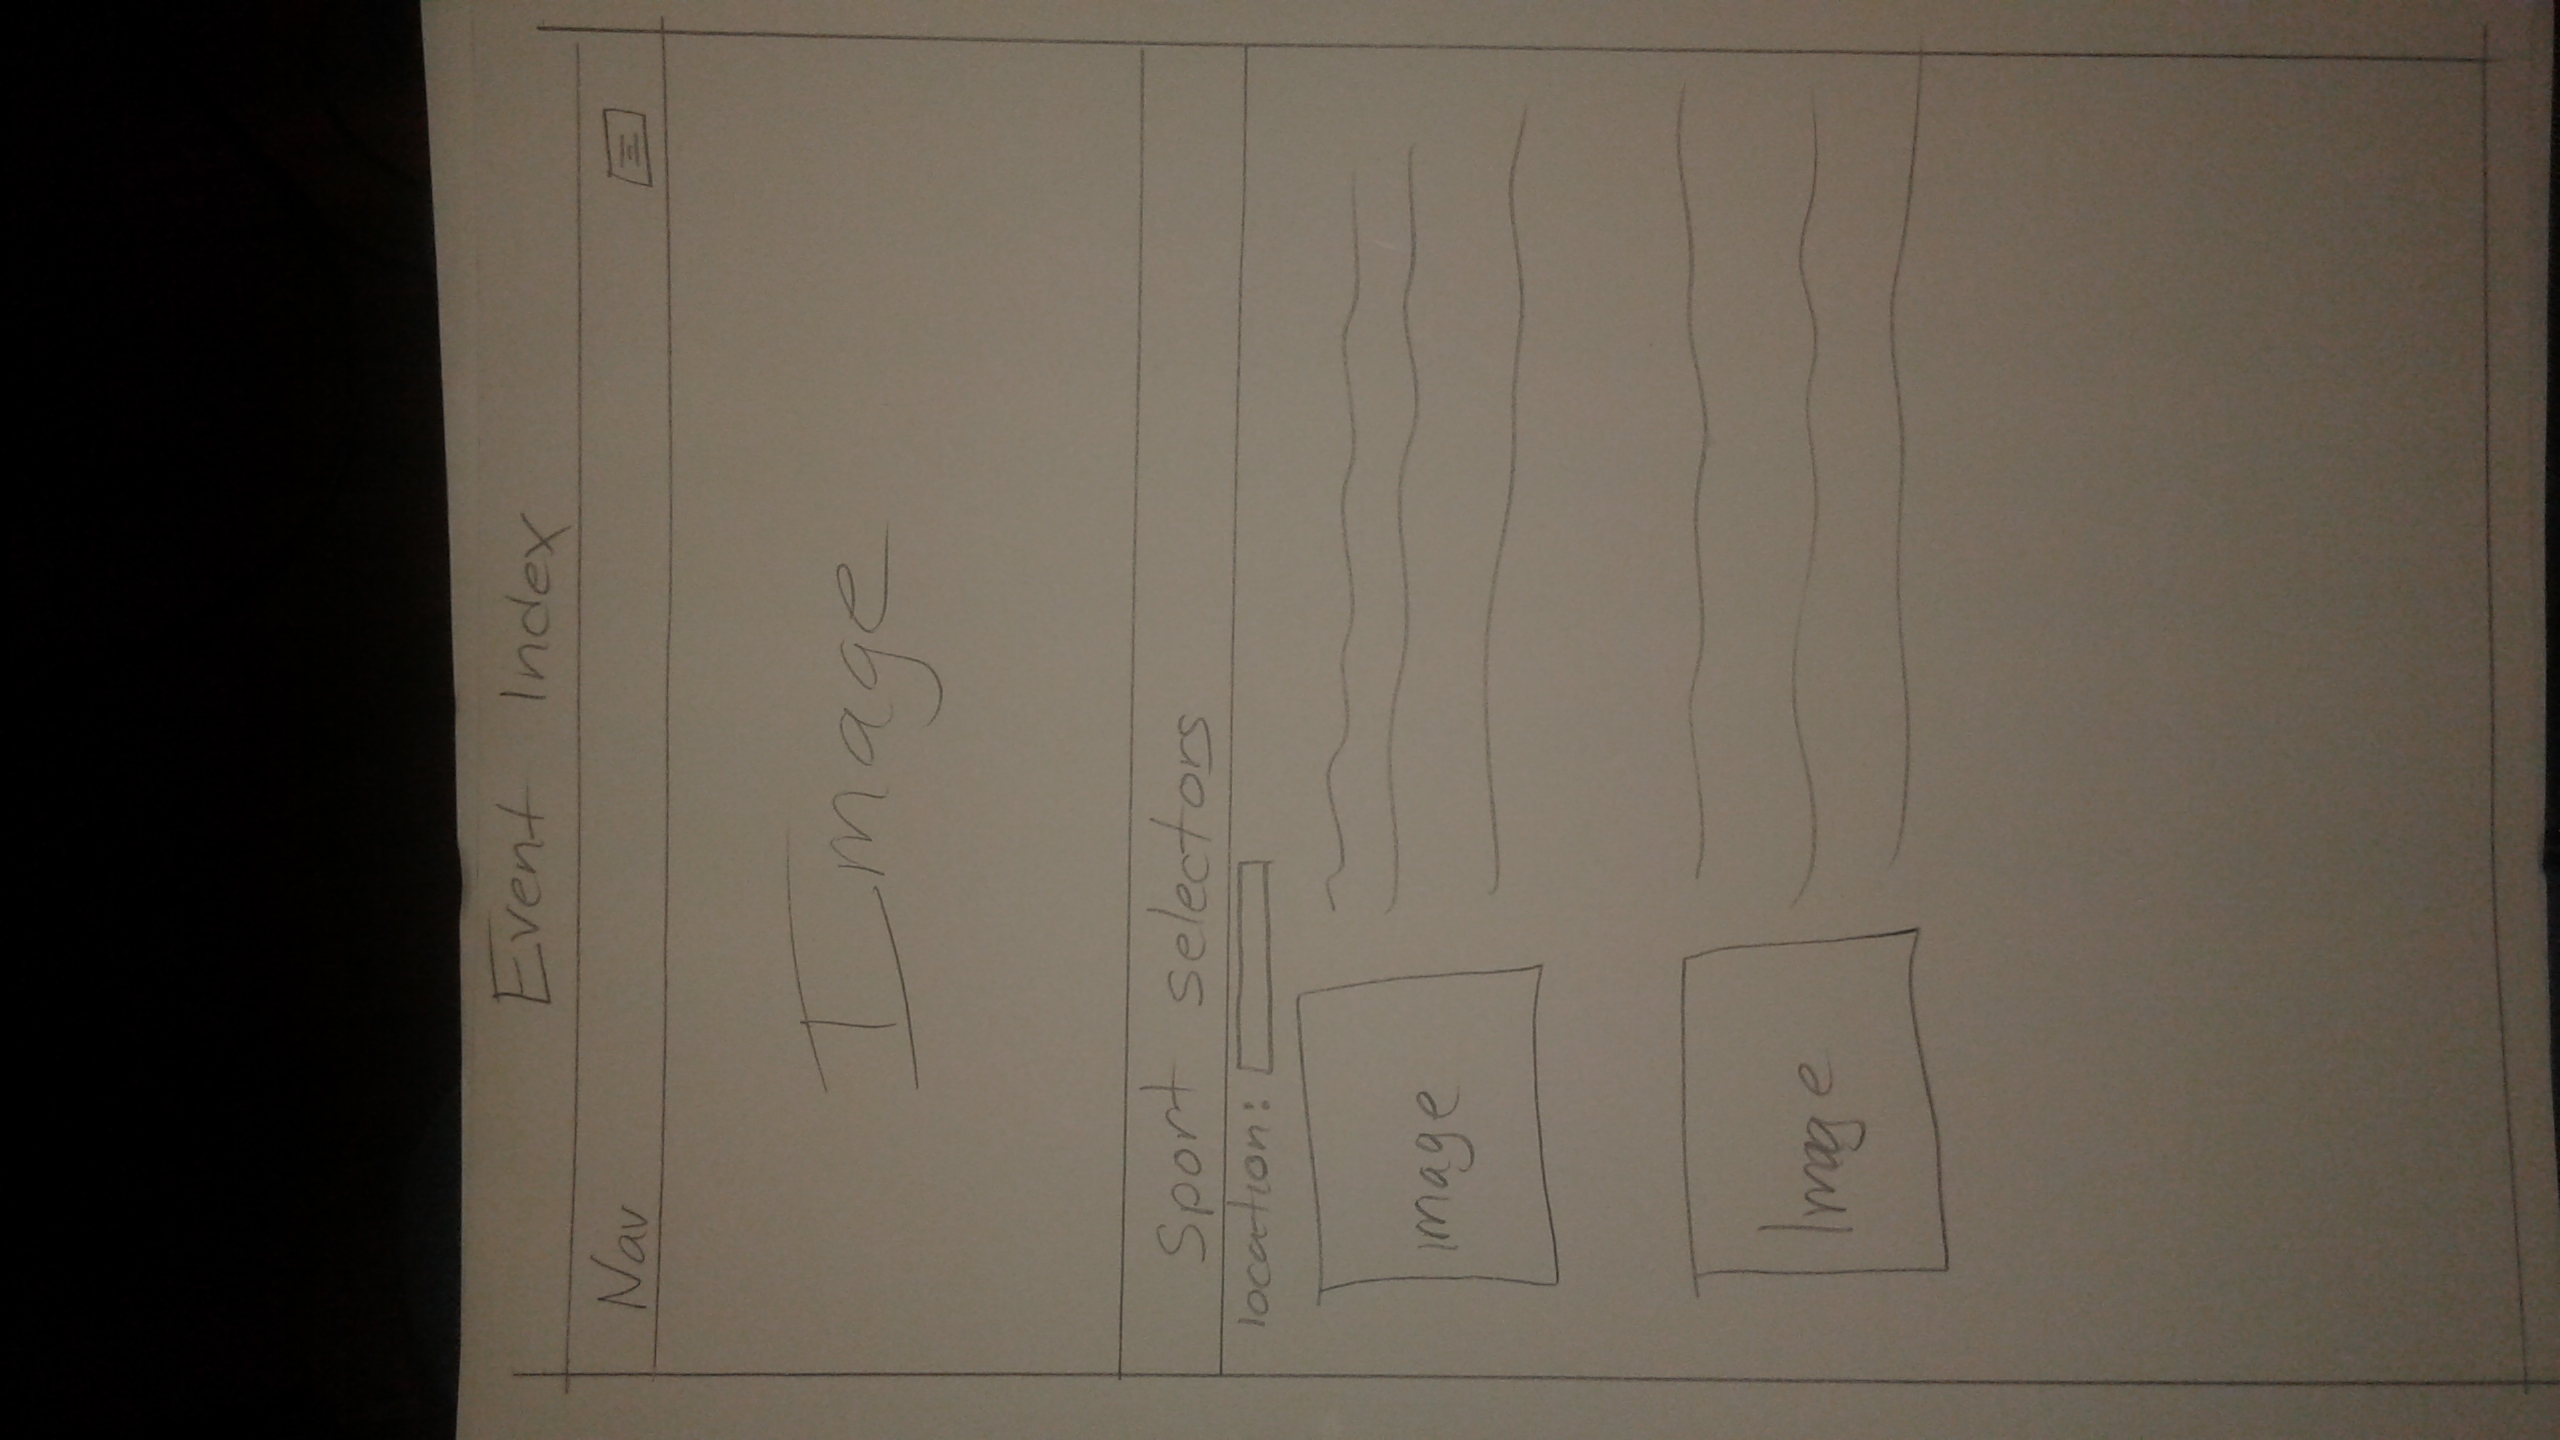 Event Index
Nav
Image
Sport selectors
location:
image
Image